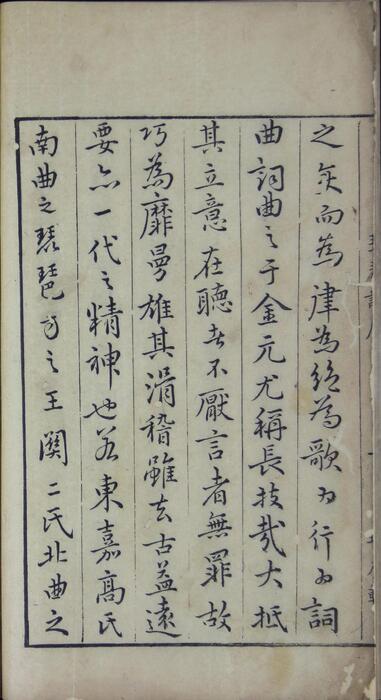 之矣而為律為絶為歌為行為詞
曲詞曲之于金元尤稱長技哉大抵
其立意在聽者不厭言者無罪故
巧為靡曼雄其滑稽雖去古益遠
要亦一代之精神也若東嘉高氏
南曲之琵琶方之王關二氏北曲之